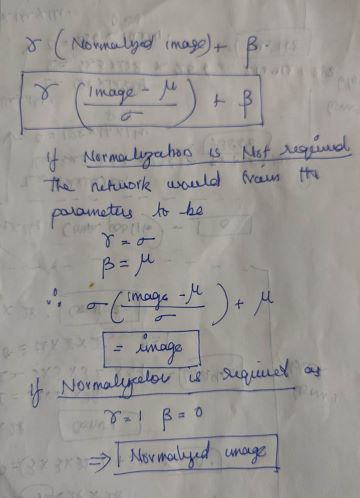 γ ( Normalized image) + β.
γ ( image - μ / σ ) + β
If Normalization is Not required
the network would train the
parameters to be
γ = σ
β = μ
∴ σ ( image - μ / σ ) + μ
= image
If Normalization is required as
γ = 1 β = 0
⇒ Normalized image